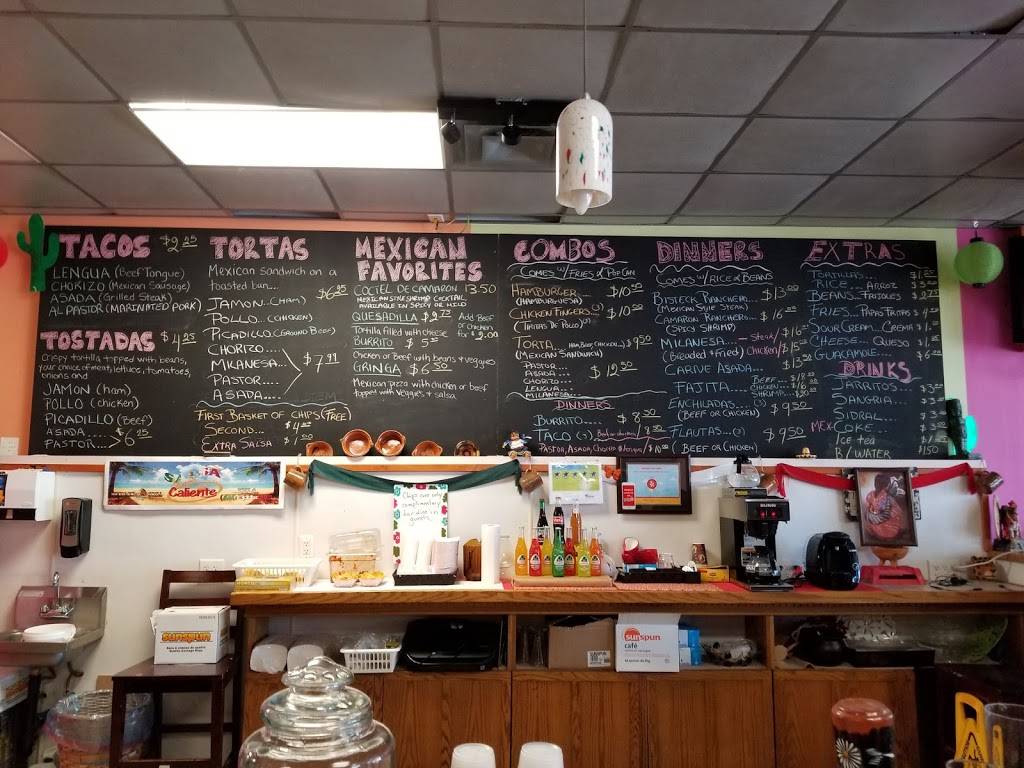 TACOS $2.25
LENGUA (Beef Tongue)
CHOKIZO (Mexican Sausage)
ASADA (Grilled Steak)
AL PASTOR (MARINATED PORK)
TOSTADAS $4.25
Crispy tortilla topped with beans,
your choice of meat, lettuce, tomatoes,
onions and
JAMON (ham)
POLLO (chicken)
PICADILLO (Beef)
ASADA
PASTOR... $6.25
TORTAS
Mexican sandwich on a
toasted bun... $6.95
JAMON... (Ham)
POLLO... (CHICKEN)
PICADILLO (GROUND BEEF)
CHORIZO...
MILANESA...
PASTOR...
ASADA...
$7.99
FIRST BASKET OF CHIPS (FREE)
SECOND...
EXTRA SALSA
MEXICAN
FAVORITES
COCTEL DE CAMARON 13.50
MEXICAN STYLE SHRIMP COCKTAIL
AVAILABLE IN SPICY OR MILD
QUESADILLA $2.75
Add Beef
or Chicken
for $2.00
Tortilla filled with cheese
BURRITO $5.25
Chicken or Beef with beans & veggies
GRINGA $6.50
Mexican pizza with chicken or beef
topped with veggies & salsa
COMBOS
COMES W/FRIES & POP CAN
HAMBURGER... $10.50
(HAMBURGUESA)
CHICKEN FINGERS... $10.50
(TIRITAS DE POLLO)
TORTA... $9.50
(MEXICAN SANDWICH)
PASTOR
ASADA...
CHORIZO
LENGUA...
MILANESA...
$12.50
DINNERS
BURRITO... $8.50
TACO (3) $8.50
PASTOR, ASADA, CHORIZO & Lengua / $10
DINNERS
COMES W/RICE & BEANS
BISTECK RANCHERO... $13.00
(MEXICAN STYLE STEAK)
CAMARON RANCHERO... $16.00
(SPICY SHRIMP)
MILANESA... - Steak/ $16
(Breaded & Fried) Chicken/ $15
CARNE ASADA...
FAJITA... BEEF
CHICKEN
SHRIMP
ENCHILADAS (3) $9.50
(BEEF OR CHICKEN)
FLAUTAS... (3) $9.50
(BEEF OR CHICKEN)
EXTRAS
TORTILLAS...
RICE... ARROZ
BEANS... FRIJOLES
FRIES... PAPAS FRITAS
SOUR CREAM... CREMA
CHEESE... QUESO
GUACAMOLE...
DRINKS
JARRITOS...
SANGRIA...
SIDRAL...
MEX COKE...
ICE TEA
B/WATER $1.50
Caliente
Chips are only
complimentary
for dine in
guests
sunspun
sunspun
café